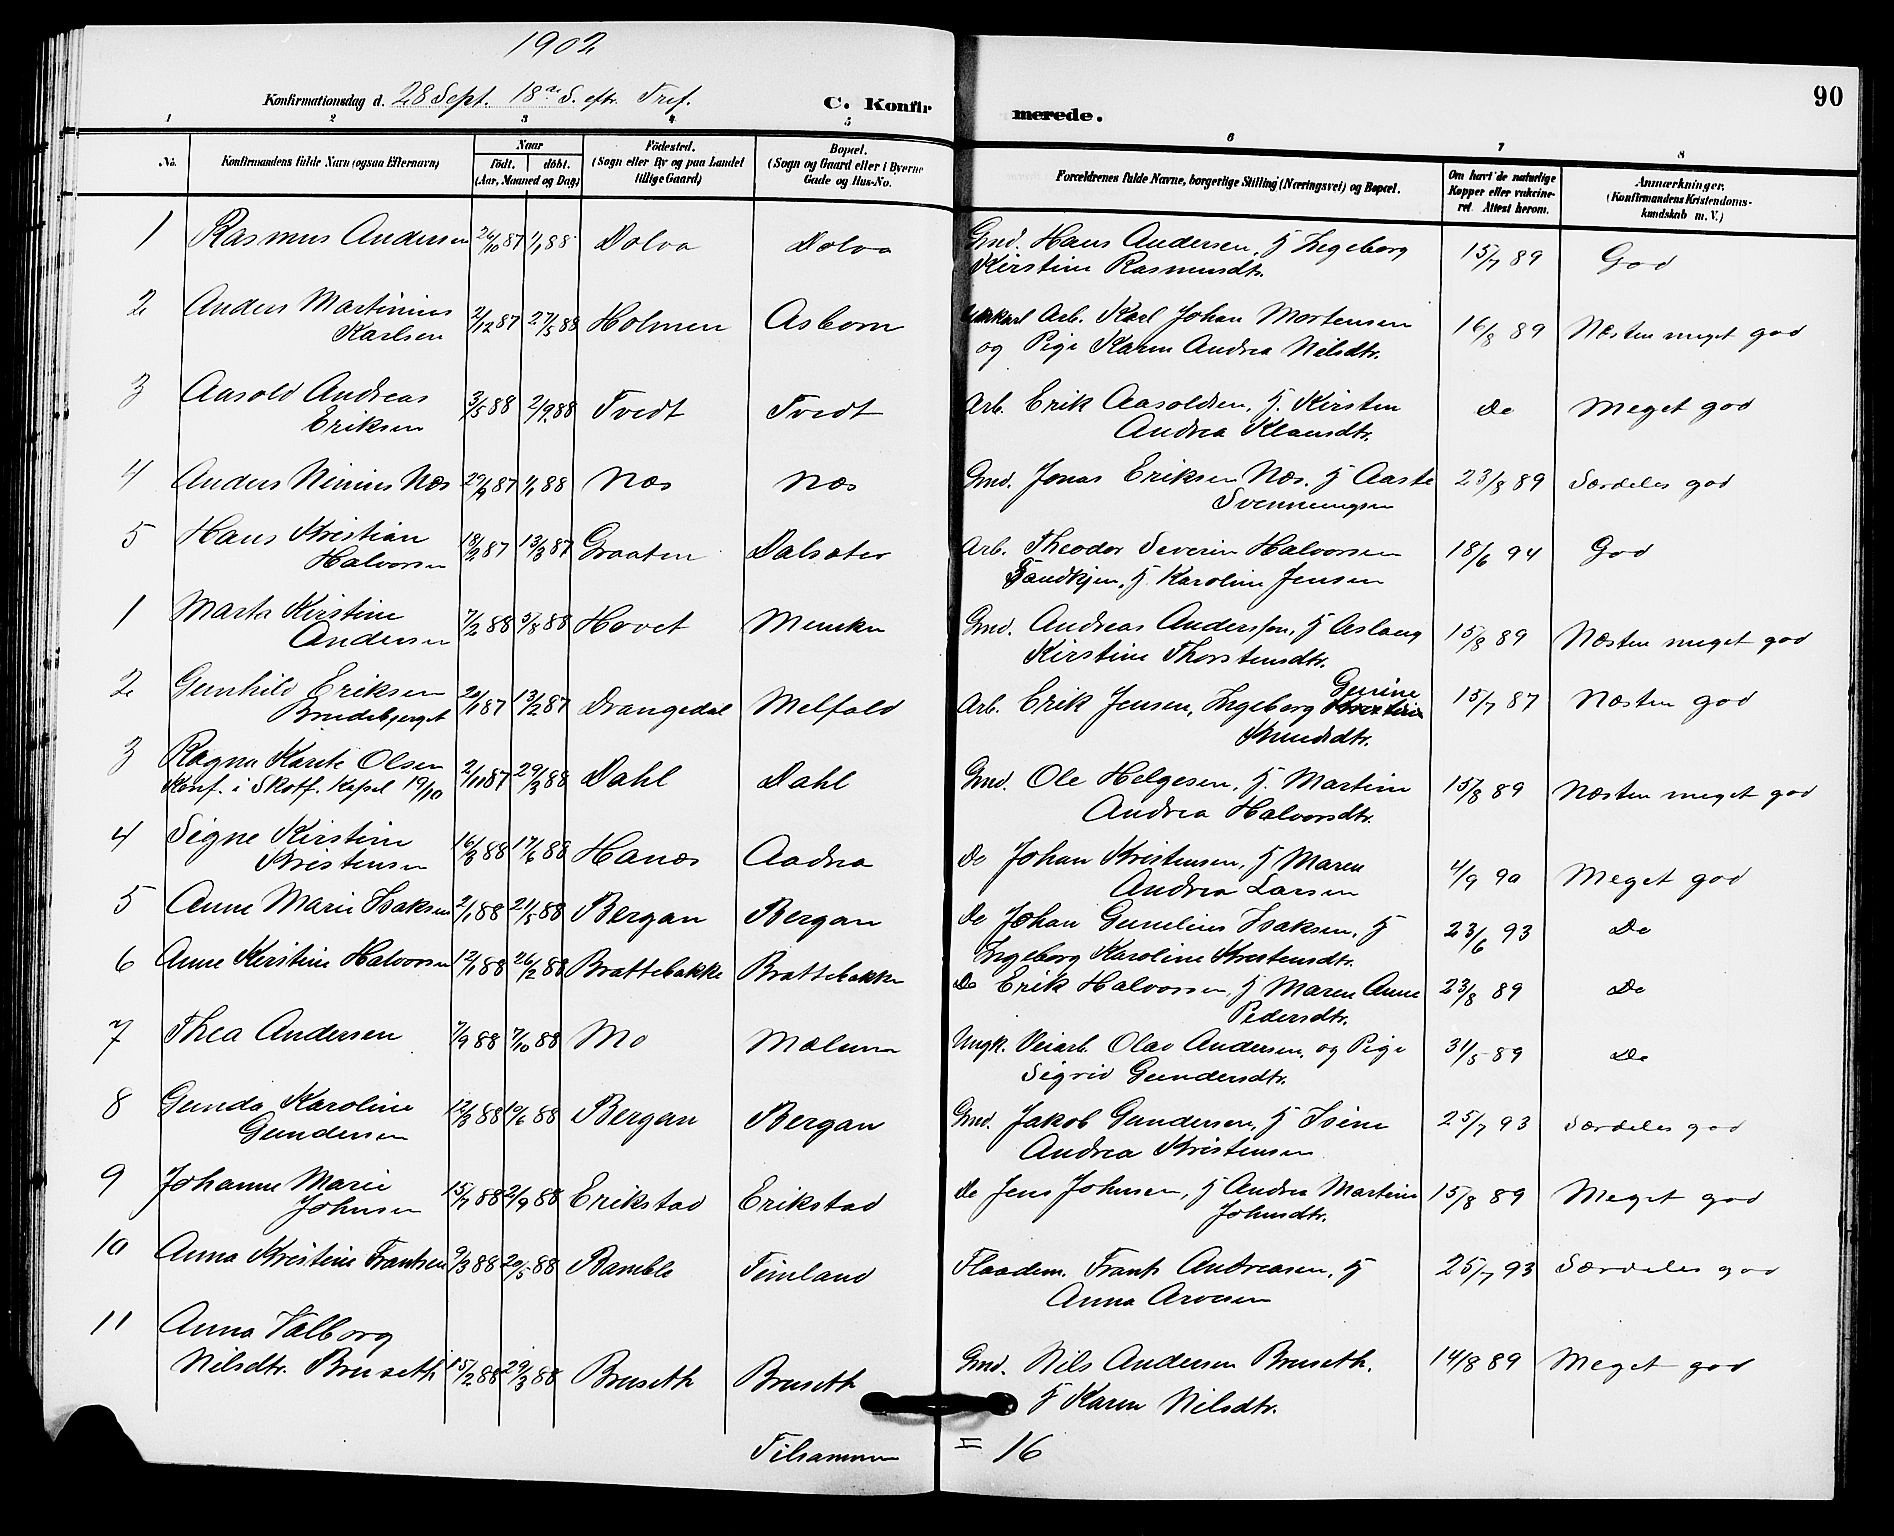 1902
90
Konfirmationsdag d. 28 Sept. 18de S. eftr. Tref.
C. Konfirmerede.
1 2 3 4 5 6 7 8
No. Konfirmandens fulde Navn (ogsaa Efternavn) Naar födt. döbt. (Aar, Maaned og Dag) Födested. (Sogn eller By og paa Landet tillige Gaard) Bopæl. (Sogn og Gaard eller i Byerne Gade og Hus-No. Forældrenes fulde Navne, borgerlige Stilling (Næringsvei) og Bopæl. Om havt de naturlige Kopper eller vakcineret. Attest herom. Anmærkninger. (Konfirmandens Kristendomskundskab m. V.)
1 Rasmus Andersen 26/10 87 1/1 88 Dolva Dolva Gmd. Hans Andersen, H Ingeborg 15/7 89 God
Kirstine Rasmusdtr.
2 Anders Martinius 2/12 87 27/5 88 Holmen Asborn Arb. Karl Johan Mortensen 16/8 89 Næsten meget god
Karlsen og Pige Karen Andrea Nilsdtr.
3 Aasold Andreas 3/5 88 2/9 88 Tvedt Tvedt Arb. Erik Aasoldsen, H. Kirsten Do Meget god
Eriksen Andrea Klausdtr.
4 Anders Ninius Næs 29/9 87 1/1 88 Næs Næs Gmd. Jonas Eriksen Næs. H Aaste 23/8 89 Særdeles god
Svenningsen
5 Hans Kristian 18/2 87 13/3 87 Graaten Dalsæter Arb. Theodor Severin Halvorsen 18/6 94 God
Halvorsen Sandkjen, H. Karoline Jensen
1 Marta Kirstine 7/2 88 5/8 88 Hovet Menikn Gmd. Andreas Andersen, H Aslaug 15/8 89 Næsten meget god
Andersen Kirstine Thorstensdtr.
2 Gunhild Eriksen 20/1 87 13/2 87 Drangedal Melfald Arb. Erik Jensen, Ingeborg Gurine 15/7 87 Næsten god
Brudebjerget Knudsdtr.
3 Ragna Karete Olsen 2/10 87 29/3 88 Dahl Dahl Gmd. Ole Helgesen, H. Martine 15/8 89 Næsten meget god
Konf. i Skotf. Kapel 19/10 Andrea Halvorsdtr.
4 Signe Kirstine 16/3 88 17/6 88 Hanæs Aadna Do Johan Kristensen, H Maren 4/9 90 Meget god
Kristensen Andrea Larsen
5 Anne Marie Isaksen 2/1 88 21/5 88 Bergan Bergan Do Johan Gunelius Isaksen, H 23/6 93 Do
Ingeborg Karoline Kristensdtr.
6 Anne Kirstine Halvorsen 12/1 88 26/2 88 Brattebakke Brattebakke Do Erik Halvorsen, H Maren Anne 23/8 89 Do
Pedersdtr.
7 Thea Andersen 7/9 88 7/10 88 Mo Mælum Ungk. Veiarb. Olav Andersen, og Pige 31/5 89 Do
Sigrid Gundersdtr.
8 Gunda Karoline 12/3 88 10/6 88 Bergan Bergan Gmd. Jakob Gundersen, H Isine 25/7 93 Særdeles god
Gundersen Andrea Kristensen
9 Johanne Marie 15/7 88 2/9 88 Erikstad Erikstad Do Jens Johnsen, H Andrea Martine 15/8 89 Meget god
Johnsen Johnsdtr.
10 Anna Kristine Frantsen 9/3 88 20/5 88 Bamble Timland Flaadem. Frants Andreasen, H 25/7 93 Særdeles god
Anna Arvesen
11 Anna Valborg
Nilsdtr. Bruseth 15/2 88 29/3 88 Bruseth Bruseth Gmd. Nils Andersen Bruseth. 14/8 89 Meget god
H Karen Nilsdtr.
Tilsammen = 16